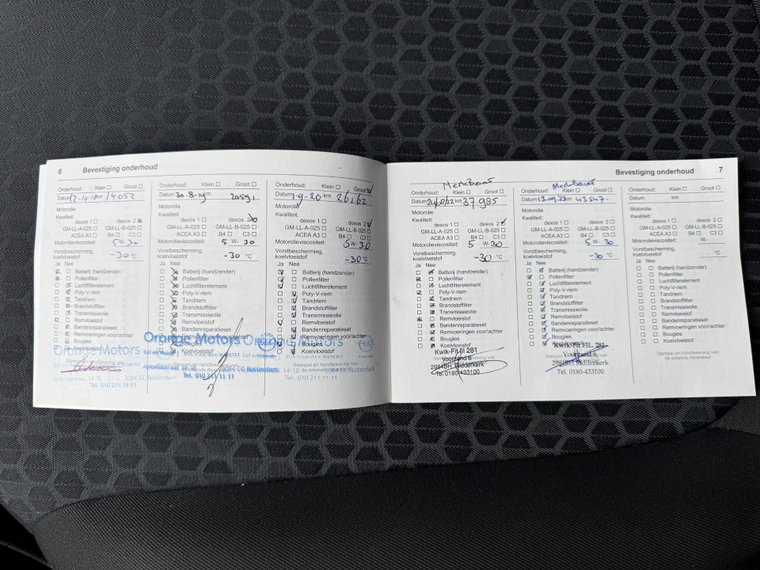 6 Bevestiging onderhoud
Onderhoud: Klein Groot
Datum km 14052
Motorolie
Kwaliteit:
dexos 1 dexos 2
GM-LL-A-025 GM-LL-B-025
ACEA A3 B4 C3
Motorolieviscositeit: 5 W- 30
Vorstbescherming,
koelvloeistof -30 °C
Ja Nee
Batterij (handzender)
Pollenfilter
Luchtfilterelement
Poly-V-riem
Tandriem
Brandstoffilter
Transmissieolie
Remvloeistof
Bandenreparatieset
Remvoeringen voor/achter
Bougies
Koelvloeistof
Orange Motors
Tel. 010 211 11 11
Onderhoud: Klein Groot
Datum 30-8-19 km 20591
Motorolie
Kwaliteit:
dexos 1 dexos 2
GM-LL-A-025 GM-LL-B-025
ACEA A3 B4 C3
Motorolieviscositeit: 5 W- 30
Vorstbescherming,
koelvloeistof -30 °C
Ja Nee
Batterij (handzender)
Pollenfilter
Luchtfilterelement
Poly-V-riem
Tandriem
Brandstoffilter
Transmissieolie
Remvloeistof
Bandenreparatieset
Remvoeringen voor/achter
Bougies
Koelvloeistof
Orange Motors
3064 CC Rotterdam
Tel. 010 211 11 11
Onderhoud: Klein Groot
Datum 1-9-20 km 26162
Motorolie
Kwaliteit:
dexos 1 dexos 2
GM-LL-A-025 GM-LL-B-025
ACEA A3 B4 C3
Motorolieviscositeit: 5 W- 30
Vorstbescherming,
koelvloeistof -30 °C
Ja Nee
Batterij (handzender)
Pollenfilter
Luchtfilterelement
Poly-V-riem
Tandriem
Brandstoffilter
Transmissieolie
Remvloeistof
Bandenreparatieset
Remvoeringen voor/achter
Bougies
Koelvloeistof
3064 CC Rotterdam
Tel. 010 211 11 11
Bevestiging onderhoud 7
Onderhoud: Klein Groot
Datum km 37.985
Motorolie
Kwaliteit:
dexos 1 dexos 2
GM-LL-A-025 GM-LL-B-025
ACEA A3 B4 C3
Motorolieviscositeit: 5 W- 30
Vorstbescherming,
koelvloeistof -30 °C
Ja Nee
Batterij (handzender)
Pollenfilter
Luchtfilterelement
Poly-V-riem
Tandriem
Brandstoffilter
Transmissieolie
Remvloeistof
Bandenreparatieset
Remvoeringen voor/achter
Bougies
Koelvloeistof
Kwik-Fit nl 281
Voorland 6
Ridderkerk
Tel 0180-433100
Onderhoud: Klein Groot
Datum km
Motorolie
Kwaliteit:
dexos 1 dexos 2
GM-LL-A-025 GM-LL-B-025
ACEA A3 B4 C3
Motorolieviscositeit: 5 W- 30
Vorstbescherming,
koelvloeistof -30 °C
Ja Nee
Batterij (handzender)
Pollenfilter
Luchtfilterelement
Poly-V-riem
Tandriem
Brandstoffilter
Transmissieolie
Remvloeistof
Bandenreparatieset
Remvoeringen voor/achter
Bougies
Koelvloeistof
Voorland 6
Ridderkerk
Tel. 0180-433100
Onderhoud: Klein Groot
Datum km
Motorolie
Kwaliteit:
dexos 1 dexos 2
GM-LL-A-025 GM-LL-B-025
ACEA A3 B4 C3
Motorolieviscositeit: W-
Vorstbescherming,
koelvloeistof °C
Ja Nee
Batterij (handzender)
Pollenfilter
Luchtfilterelement
Poly-V-riem
Tandriem
Brandstoffilter
Transmissieolie
Remvloeistof
Bandenreparatieset
Remvoeringen voor/achter
Bougies
Koelvloeistof
Stempel en handtekening van
de erkende reparateur